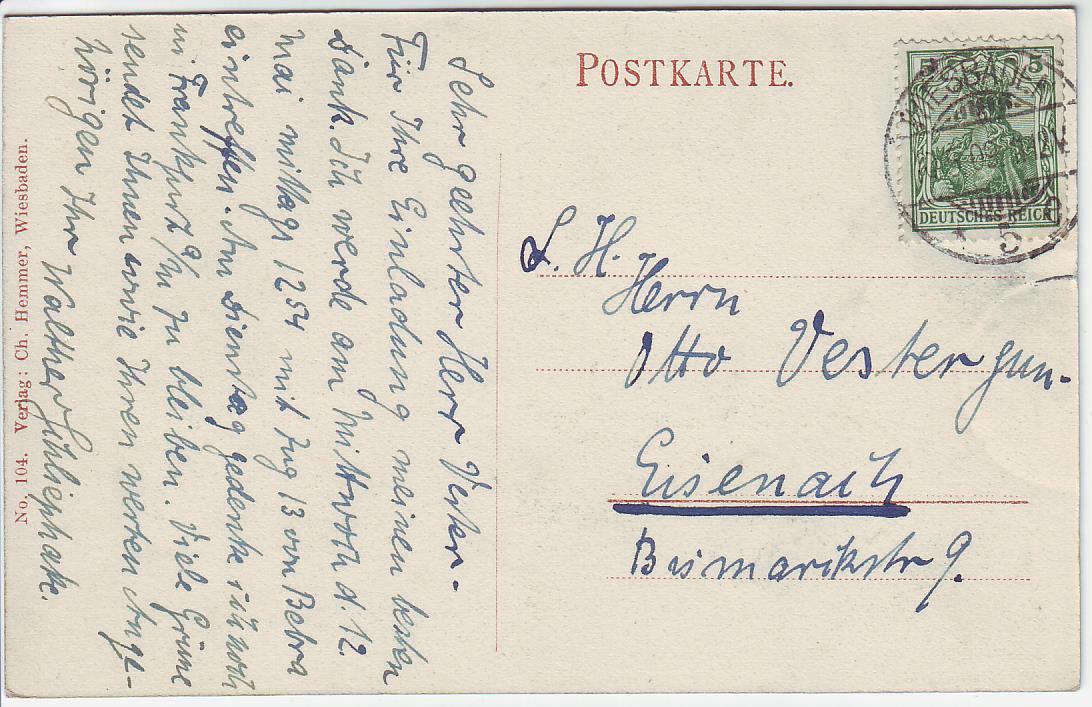 POSTKARTE.
5 5
DEUTSCHES REICH
WIESBADEN
* 5
S. H.
Herrn
Otto Vestergun.
Eisenach
Bismarckstr 9.
Sehr geehrter Herr Vester.
Für Ihre Einladung meinen besten
Dank. Ich werde am Mittwoch d. 12.
Mai mittags 1254 mit Zug 13 von Bebra
eintreffen. Am Dienstag gedenke ich noch
in Frankfurt a/M zu bleiben. Viele Grüße
sendet Ihnen sowie Ihren werten Ange-
hörigen Ihr Walther Schliephake.
No. 104. Verlag: Ch. Hemmer, Wiesbaden.